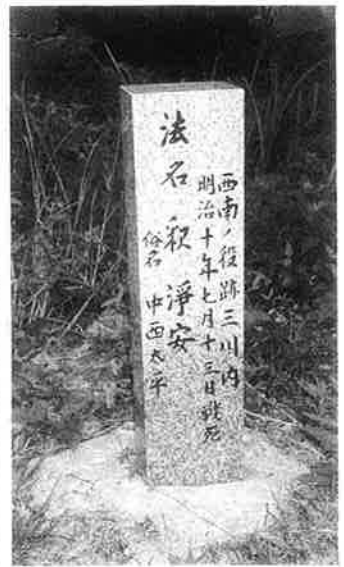 西南ノ役跡三川内
明治十年七月十三日戦死
法名釈浄安
俗名 中西太平